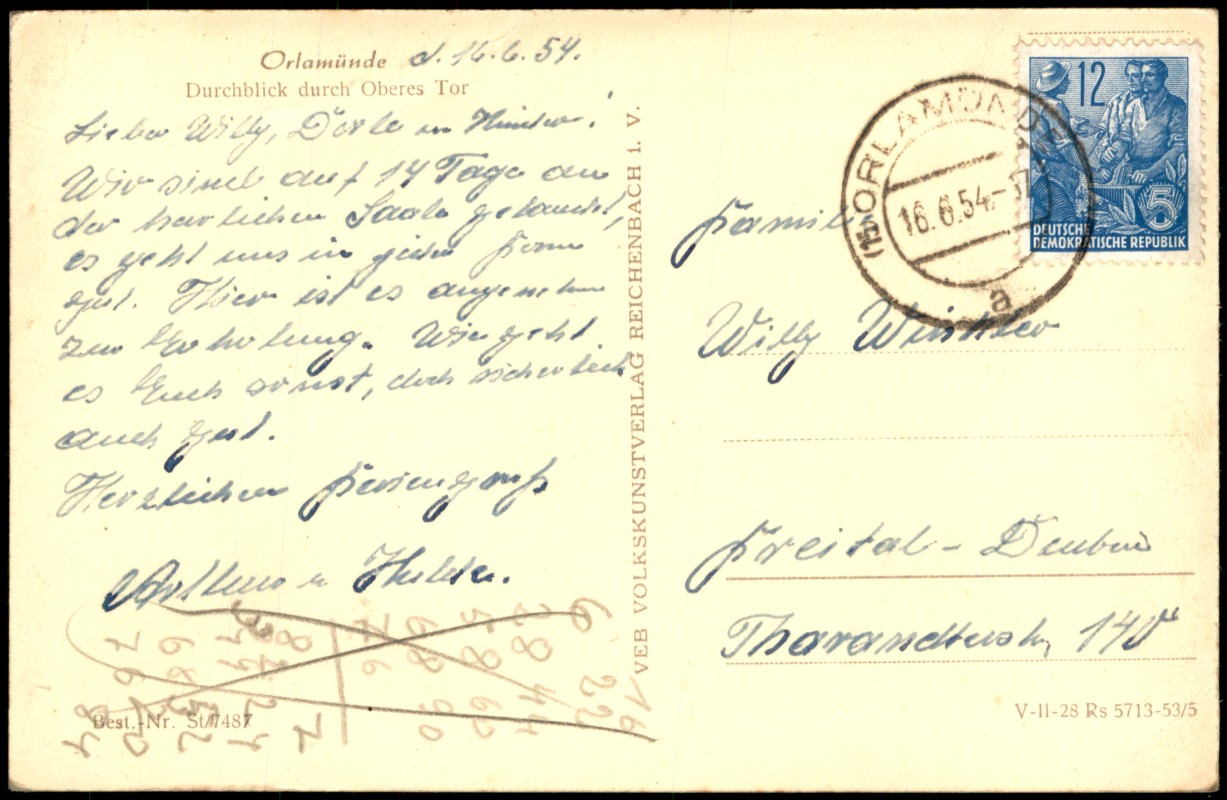 Orlamünde d. 16.6.54.
Durchblick durch Oberes Tor
Lieber Willy, Dorle u
Wir sind auf 14 Tage an
der herlichen Saale gelandet,
es geht uns in jeder Form
gut. Hier ist es angenehm
zur Erholung. Wie geht
es Euch sonst, doch sicherlich
auch gut.
Herzlichen Feriengruß
Arthur u Hulda.
Best.-Nr. St/7487
VEB VOLKSKUNSTVERLAG REICHENBACH i. V.
ORLAMÜNDE
16.6.54.-17
a
12
5
DEUTSCHE
DEMOKRATISCHE REPUBLIK
Famili
Willy Winkler
Freital - Deuben
Tharandterstr, 140
V-II-28 Rs 5713-53/5